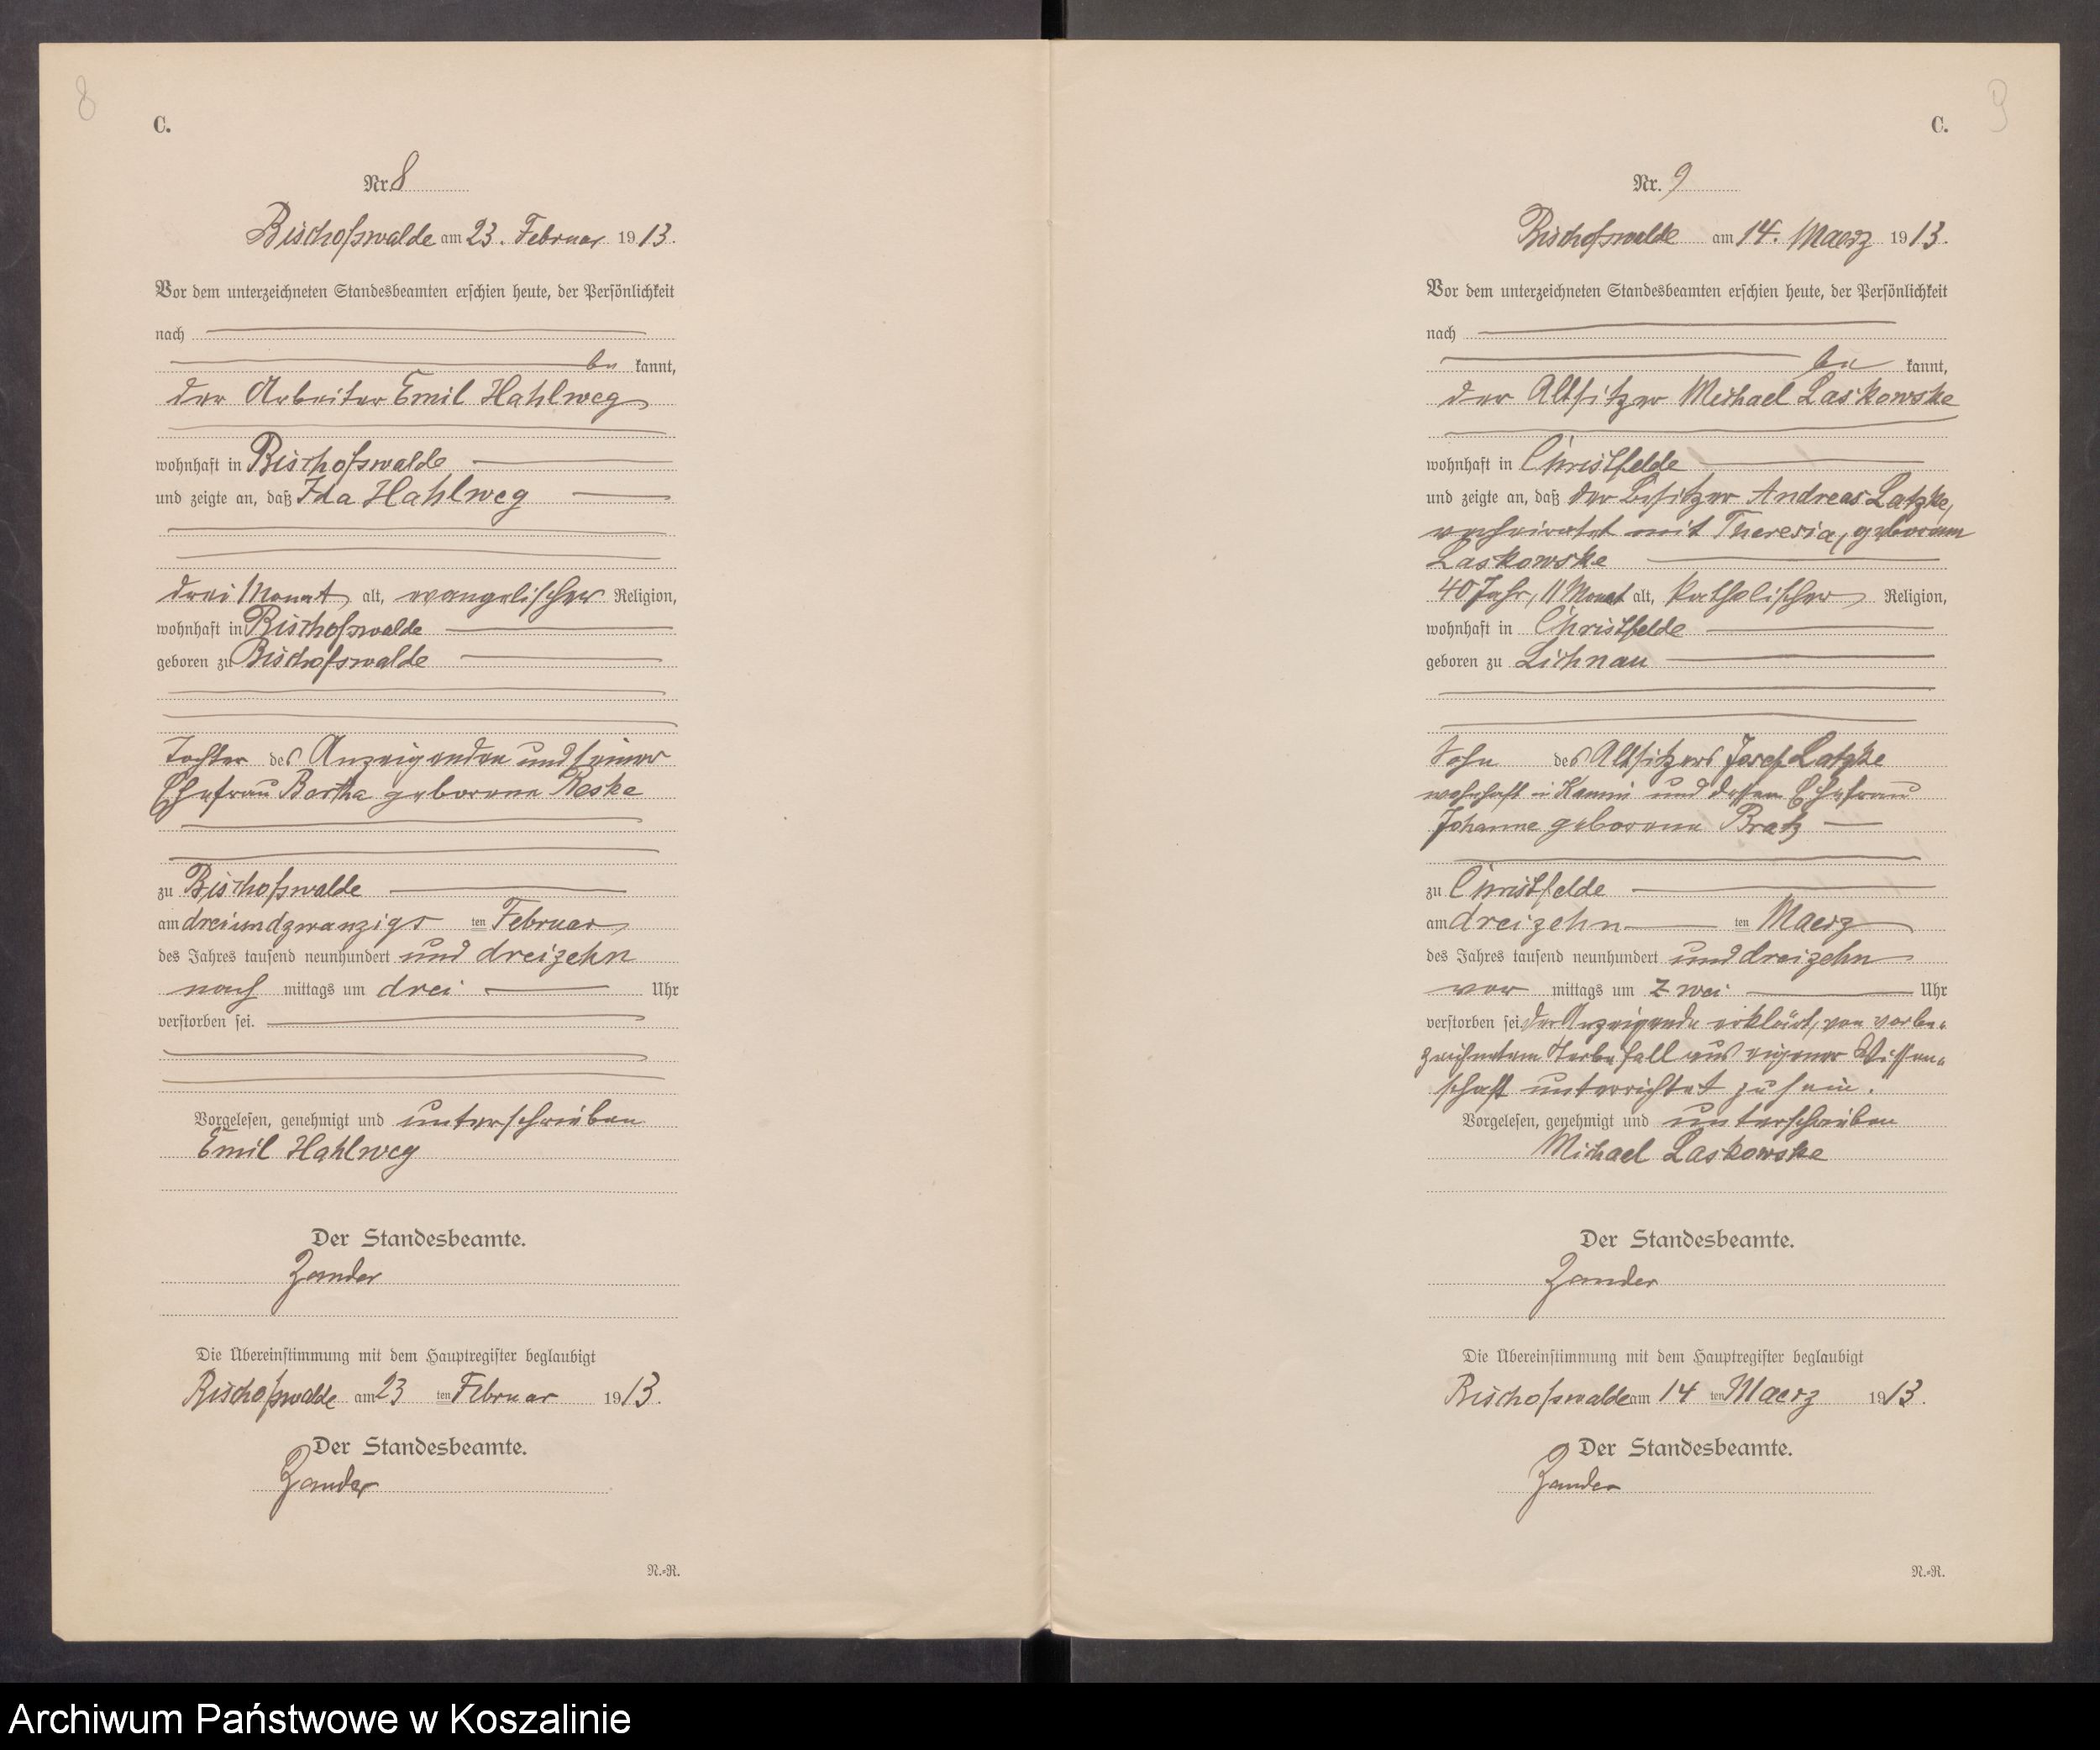 8
C.
Nr. 8
Bischofswalde am 23. Februar 1913.
Vor dem unterzeichneten Standesbeamten erschien heute, der Persönlichkeit
nach
be kannt,
der Arbeiter Emil Hahlweg
wohnhaft in Bischofswalde
und zeigte an, daß Ida Hahlweg
drei Monat alt, evangelischer Religion,
wohnhaft in Bischofswalde
geboren zu Bischofswalde
Tochter des Anzeigenden und seiner
Ehefrau Bertha geborene Reske
zu Bischofswalde
am dreiundzwanzigs ten Februar
des Jahres tausend neunhundert und dreizehn
nach mittags um drei Uhr
verstorben sei.
Vorgelesen, genehmigt und unterschrieben
Emil Hahlweg
Der Standesbeamte.
Zander
Die Übereinstimmung mit dem Hauptregister beglaubigt
Bischofswalde am 23 ten Februar 1913.
Der Standesbeamte.
Zander
N.-R.
9
C.
Nr. 9
Bischofswalde am 14. Maerz 1913.
Vor dem unterzeichneten Standesbeamten erschien heute, der Persönlichkeit
nach
be kannt,
der Altsitzer Michael Laskowske
wohnhaft in Christfelde
und zeigte an, daß der Besitzer Andreas Latzke,
verheiratet mit Theresia, geborene
Laskowske
40 Jahr, 11 Monat alt, katholischer Religion,
wohnhaft in Christfelde
geboren zu Lichnau
Sohn des Altsitzers Josef Latzke
wohnhaft in Kamin und dessen Ehefrau
Johanne geborene Bratz
zu Christfelde
am dreizehn ten Maerz
des Jahres tausend neunhundert und dreizehn
vor mittags um zwei Uhr
verstorben sei. Der Anzeigende erklärt, von vorbe-
zeichnetem Sterbefall aus eigener Wissen-
schaft unterrichtet zu sein.
Vorgelesen, genehmigt und unterschrieben
Michael Laskowske
Der Standesbeamte.
Zander
Die Übereinstimmung mit dem Hauptregister beglaubigt
Bischofswalde am 14 ten Maerz 1913.
Der Standesbeamte.
Zander
N.-R.
Archiwum Państwowe w Koszalinie